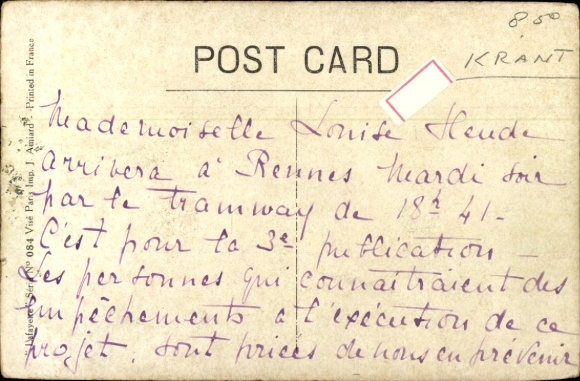 8.50
KRANT
POST CARD
"Lafayette" Série No 084 Visé Paris Imp. J. Amiard - Printed in France
Mademoiselle Louise Heude
arrivera à Rennes Mardi soir
par le tramway de 18h 41 -
C'est pour la 3e publication -
Les personnes qui connaitraient des
empêchements à l'exécution de ce
projet, sont priées de nous en prévenir